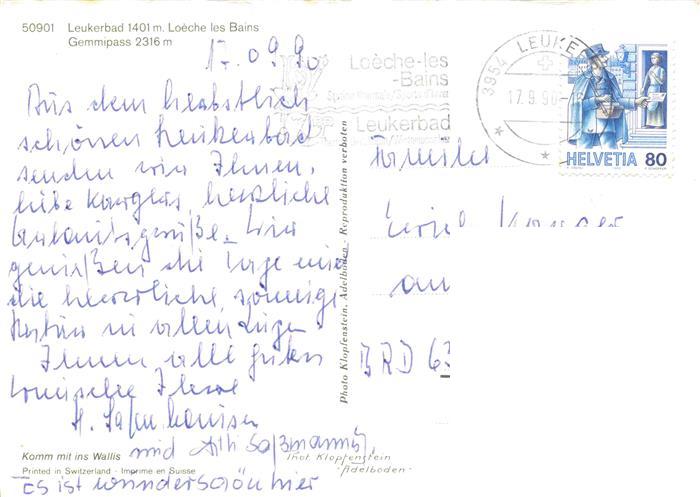 50901 Leukerbad 1401 m. Loèche les Bains
Gemmipass 2316 m
17.09.90
Aus dem herbstlich
schönen Leukerbad
senden wir Ihnen,
liebe herzliche
Urlaubsgrüße. Wir
genießen die Tage und
die herrliche, sonnige
Natur in allen Zügen
Ihnen alle guten
Wünsche Ihre
H.
und
Es ist wunderschön hier
Komm mit ins Wallis
Printed in Switzerland - Imprimé en Suisse
Photo Klopfenstein, Adelboden - Reproduktion verboten
Loèche-les
-Bains
Leukerbad
3954 LEUKE
17.9.90
HELVETIA 80
Familie
an
BRD 63
Phot. Klopfenstein
Adelboden